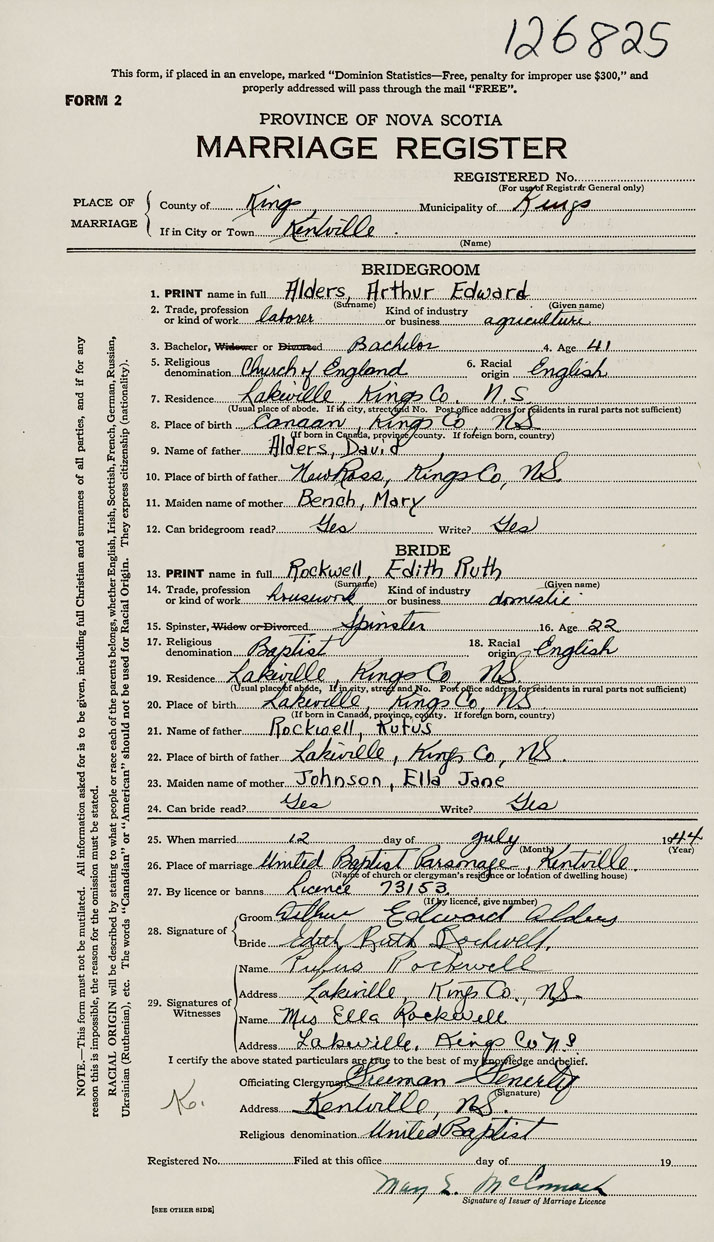 126825
This form, if placed in an envelope, marked "Dominion Statistics—Free, penalty for improper use $300," and
properly addressed will pass through the mail "FREE".
FORM 2
PROVINCE OF NOVA SCOTIA
MARRIAGE REGISTER
REGISTERED No.
(For use of Registrar General only)
PLACE OF MARRIAGE
County of Kings Municipality of Kings
If in City or Town Kentville
(Name)
BRIDEGROOM
1. PRINT name in full Alders, Arthur Edward
(Surname) (Given name)
2. Trade, profession or kind of work laborer Kind of industry or business agriculture
3. Bachelor, Widower or Divorced Bachelor 4. Age 41
5. Religious denomination Church of England 6. Racial origin English
7. Residence Lakeville, Kings Co. N.S.
(Usual place of abode. If in city, street and No. Post office address for residents in rural parts not sufficient)
8. Place of birth Canaan, Kings Co, NS
(If born in Canada, province, county. If foreign born, country)
9. Name of father Alders, David
10. Place of birth of father New Ross, Kings Co, NS.
11. Maiden name of mother Bench, Mary
12. Can bridegroom read? Yes Write? Yes
BRIDE
13. PRINT name in full Rockwell, Edith Ruth
(Surname) (Given name)
14. Trade, profession or kind of work housework Kind of industry or business domestic
15. Spinster, Widow or Divorced Spinster 16. Age 22
17. Religious denomination Baptist 18. Racial origin English
19. Residence Lakeville, Kings Co, NS.
(Usual place of abode, If in city, street and No. Post office address for residents in rural parts not sufficient)
20. Place of birth Lakeville, Kings Co, NS
(If born in Canada, province, county. If foreign born, country)
21. Name of father Rockwell, Rufus
22. Place of birth of father Lakeville, Kings Co, NS.
23. Maiden name of mother Johnson, Ella Jane
24. Can bride read? Yes Write? Yes
25. When married 12 day of July 1944
(Month) (Year)
26. Place of marriage United Baptist Parsonage, Kentville.
(Name of church or clergyman's residence or location of dwelling house)
27. By licence or banns Licence 73153
(If by licence, give number)
28. Signature of
Groom Arthur Edward Alders
Bride Edith Ruth Rockwell.
29. Signatures of Witnesses
Name Rufus Rockwell
Address Lakeville, Kings Co., NS.
Name Mrs Ella Rockwell
Address Lakeville, Kings Co NS
I certify the above stated particulars are true to the best of my knowledge and belief.
Officiating Clergyman Freeman Fenerty
(Signature)
Address Kentville, NS.
Religious denomination United Baptist
Registered No. Filed at this office day of 19
Mary E. McCormack
Signature of Issuer of Marriage Licence
[SEE OTHER SIDE]
NOTE.—This form must not be mutilated. All information asked for is to be given, including full Christian and surnames of all parties, and if for any
reason this is impossible, the reason for the omission must be stated.
RACIAL ORIGIN will be described by stating to what people or race each of the parents belongs, whether English, Irish, Scottish, French, German, Russian,
Ukrainian (Ruthenian), etc. The words "Canadian" or "American" should not be used for Racial Origin. They express citizenship (nationality).